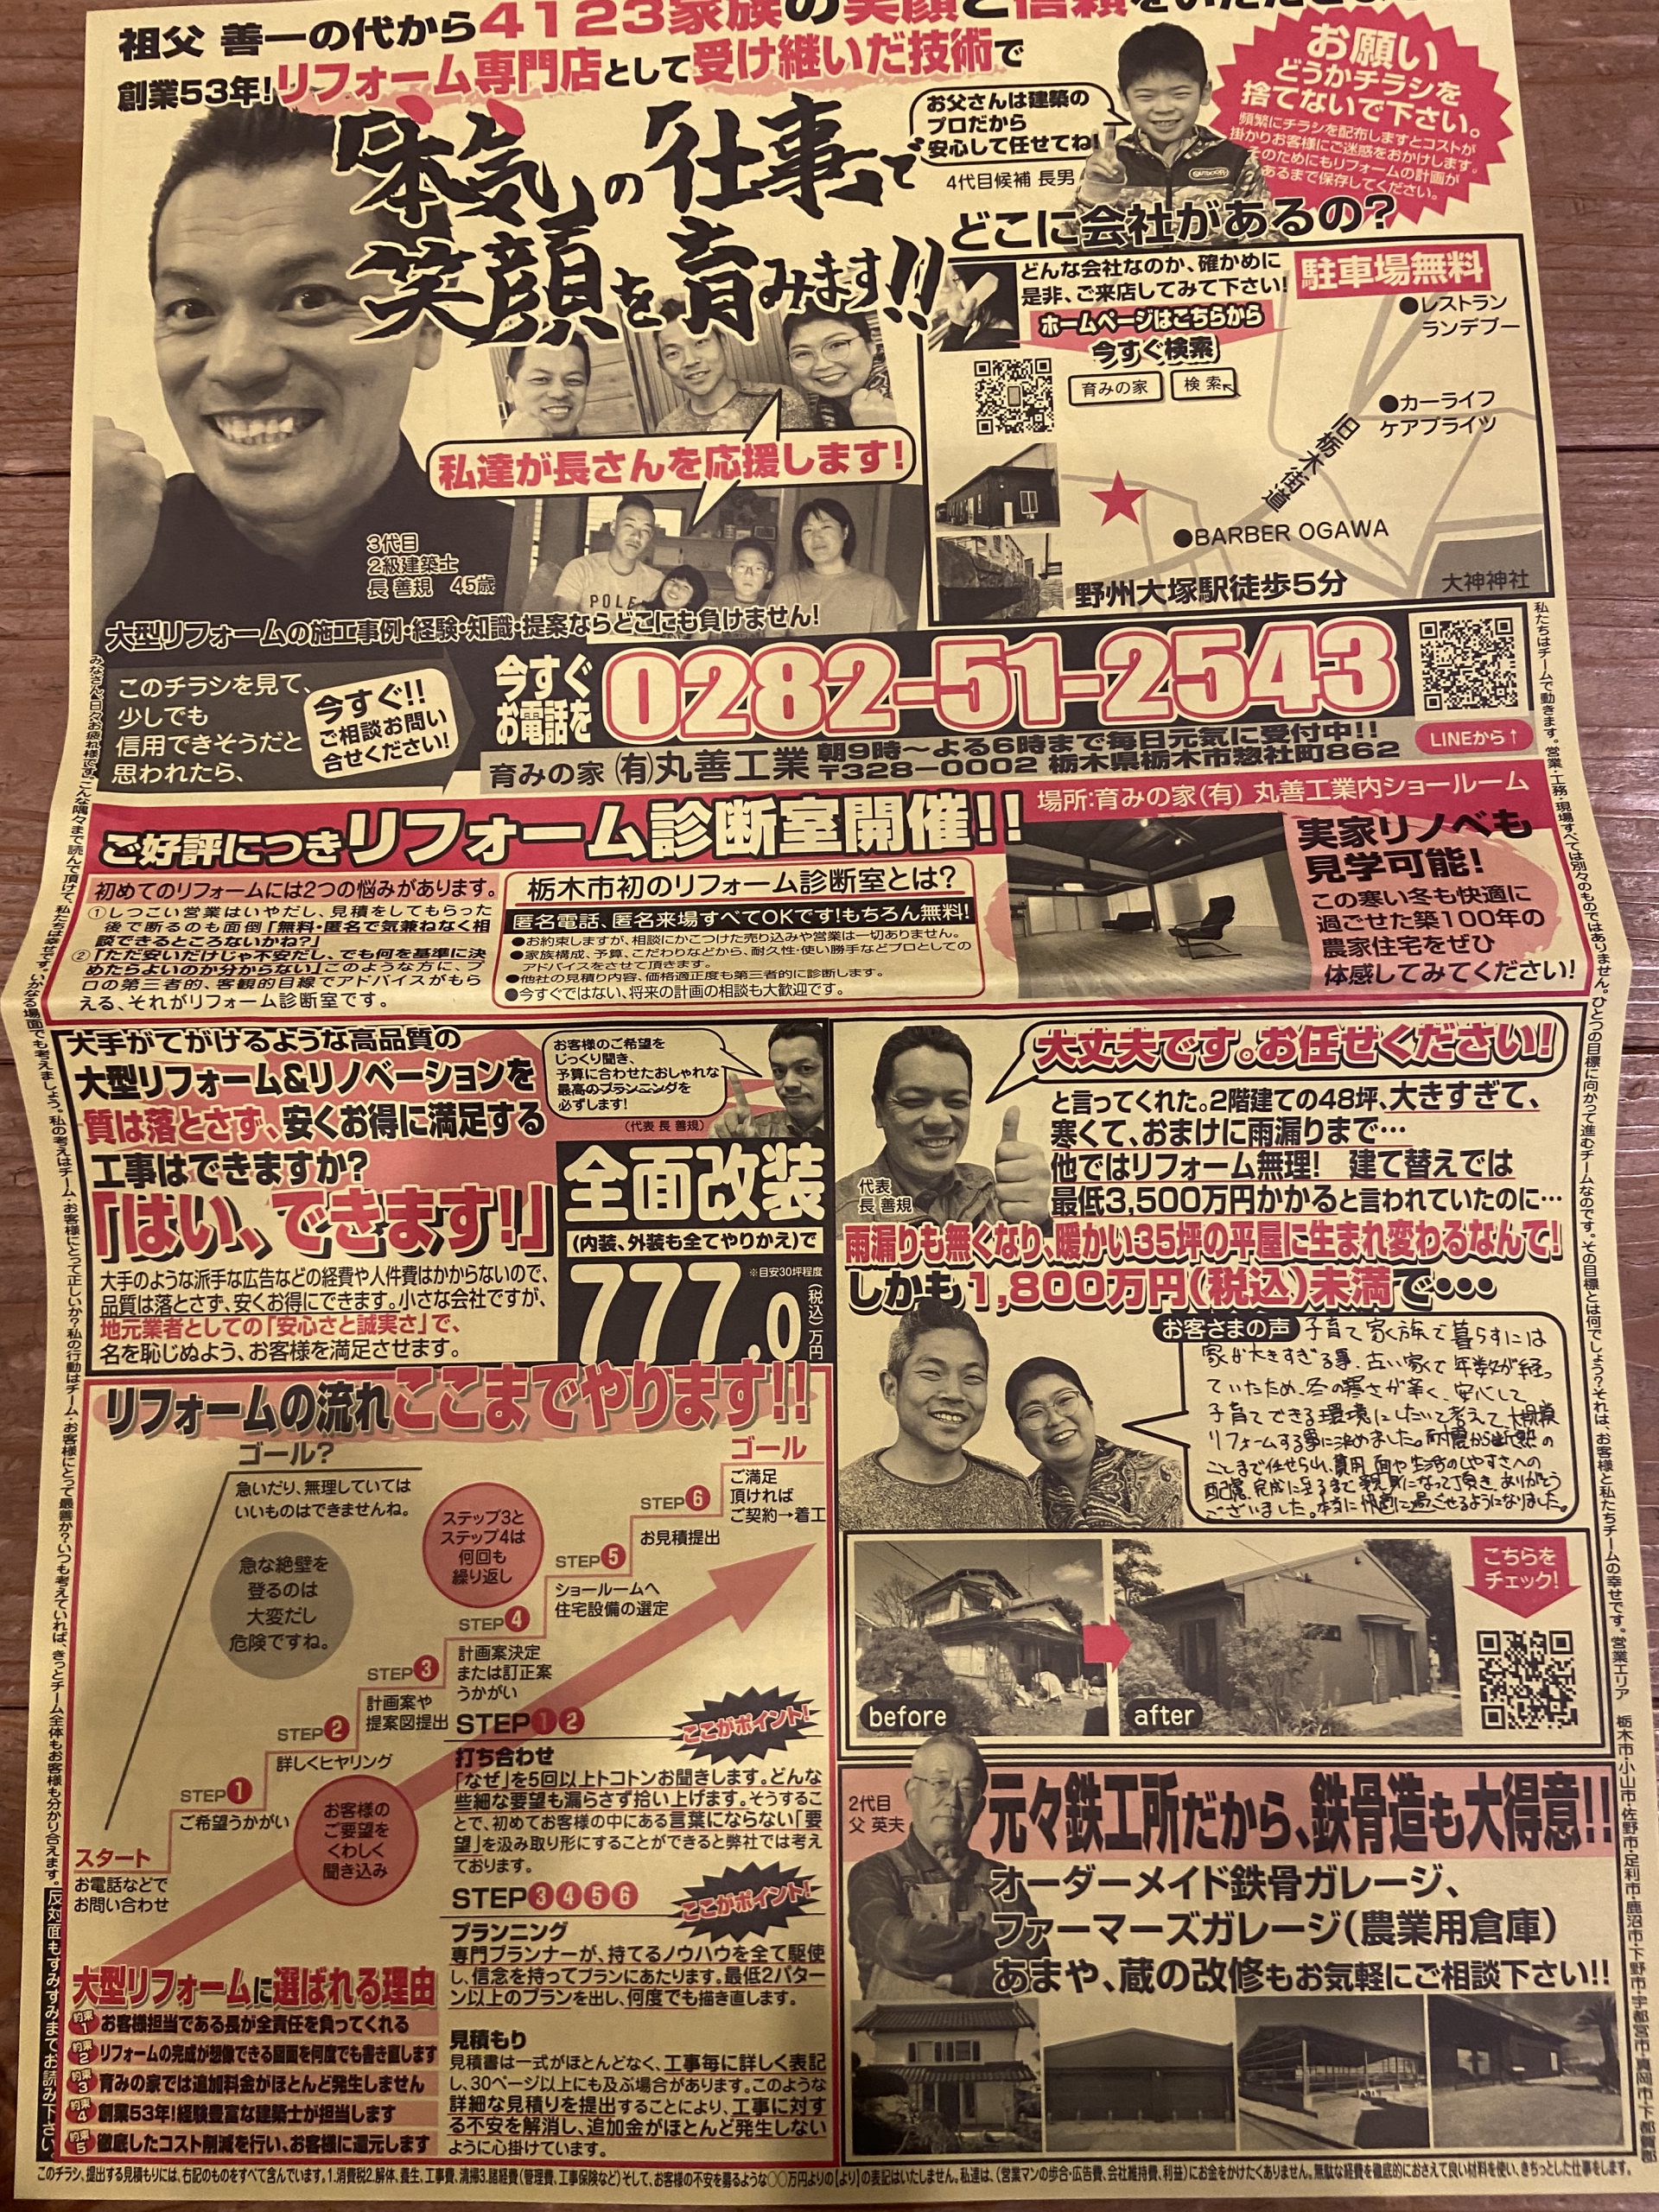 祖父 善一の代から4123家族の笑顔と信頼を
創業53年!リフォーム専門店として受け継いだ技術で
「本気」の「仕事」で
笑顔を育みます!!
お父さんは建築の
プロだから
安心して任せてね!
4代目候補 長男
お願い
どうかチラシを
捨てないで下さい。
頻繁にチラシを配布しますとコストが
掛かりお客様にご迷惑をおかけします。
そのためにもリフォームの計画が
あるまで保存してください。
どこに会社があるの?
どんな会社なのか、確かめに
是非、ご来店してみて下さい!
駐車場無料
ホームページはこちらから
今すぐ検索
育みの家 検索
●レストラン
ランデブー
●カーライフ
ケアプライツ
旧栃木街道
●BARBER OGAWA
大神神社
野州大塚駅徒歩5分
私達が長さんを応援します!
POLE
3代目
2級建築士
長 善規 45歳
大型リフォームの施工事例・経験・知識・提案ならどこにも負けません!
このチラシを見て、
少しでも
信用できそうだと
思われたら、
今すぐ!!
ご相談お問い
合せください!
今すぐ
お電話を
0282-51-2543
LINEから↑
育みの家 (有)丸善工業
朝9時~よる6時まで毎日元気に受付中!!
〒328-0002 栃木県栃木市惣社町862
ご好評につきリフォーム診断室開催!!
場所:育みの家(有) 丸善工業内ショールーム
初めてのリフォームには2つの悩みがあります。
①しつこい営業はいやだし、見積をしてもらった
後で断るのも面倒「無料・匿名で気兼ねなく相
談できるところないかね?」
②「ただ安いだけじゃ不安だし、でも何を基準に決
めたらよいのか分からない」このような方に、プ
ロの第三者的、客観的目線でアドバイスがもら
える、それがリフォーム診断室です。
栃木市初のリフォーム診断室とは?
匿名電話、匿名来場すべてOKです!もちろん無料!
●お約束しますが、相談にかこつけた売り込みや営業は一切ありません。
●家族構成、予算、こだわりなどから、耐久性・使い勝手などプロとしての
アドバイスをさせて頂きます。
●他社の見積り内容、価格適正度も第三者的に診断します。
●今すぐではない、将来の計画の相談も大歓迎です。
実家リノベも
見学可能!
この寒い冬も快適に
過ごせた築100年の
農家住宅をぜひ
体感してみてください!
大手がてがけるような高品質の
大型リフォーム&リノベーションを
質は落とさず、安くお得に満足する
工事はできますか?
「はい、できます!」
大手のような派手な広告などの経費や人件費はかからないので、
品質は落とさず、安くお得にできます。小さな会社ですが、
地元業者としての「安心さと誠実さ」で、
名を恥じぬよう、お客様を満足させます。
お客様のご希望を
じっくり聞き、
予算に合わせたおしゃれな
最高のプランニングを
必ずします!
(代表 長 善規)
全面改装
(内装、外装も全てやりかえ)で
※目安30坪程度
777.0
(税込)万円
大丈夫です。お任せください!
と言ってくれた。2階建ての48坪、大きすぎて、
寒くて、おまけに雨漏りまで…
他ではリフォーム無理! 建て替えでは
最低3,500万円かかると言われていたのに…
代表
長 善規
雨漏りも無くなり、暖かい35坪の平屋に生まれ変わるなんて!
しかも1,800万円(税込)未満で・・・
お客さまの声
子育て家族で暮らすには
家が大きすぎる事、古い家で年数が経っ
ていたため、冬の寒さが辛く、安心して
子育てできる環境にしたいと考えて大規模
リフォームする事に決めました。耐震から断熱の
ことまで任せられ、費用面や生活のしやすさへの
配慮、完成に至るまで親身になって頂き、ありがとう
ございました。本当に快適に過ごせるようになりました。
before
after
こちらを
チェック!
リフォームの流れここまでやります!!
ゴール?
急いだり、無理していては
いいものはできませんね。
急な絶壁を
登るのは
大変だし
危険ですね。
ステップ3と
ステップ4は
何回も
繰り返し
ゴール
ご満足
頂ければ
ご契約→着工
STEP6
お見積提出
STEP5
ショールームへ
住宅設備の選定
STEP4
計画案決定
または訂正案
うかがい
STEP3
計画案や
提案図提出
STEP2
詳しくヒヤリング
STEP1
ご希望うかがい
スタート
お電話などで
お問い合わせ
お客様の
ご要望を
くわしく
聞き込み
STEP12
ここがポイント!
打ち合わせ
「なぜ」を5回以上トコトンお聞きします。どんな
些細な要望も漏らさず拾い上げます。そうするこ
とで、初めてお客様の中にある言葉にならない「要
望」を汲み取り形にすることができると弊社では考え
ております。
STEP3456
ここがポイント!
プランニング
専門プランナーが、持てるノウハウを全て駆使
し、信念を持ってプランにあたります。最低2パター
ン以上のプランを出し、何度でも描き直します。
見積もり
見積書は一式がほとんどなく、工事毎に詳しく表記
し、30ページ以上にも及ぶ場合があります。このような
詳細な見積りを提出することにより、工事に対す
る不安を解消し、追加金がほとんど発生しない
ように心掛けています。
大型リフォームに選ばれる理由
約束1 お客様担当である長が全責任を負ってくれる
約束2 リフォームの完成が想像できる図面を何度でも書き直します
約束3 育みの家では追加料金がほとんど発生しません
約束4 創業53年!経験豊富な建築士が担当します
約束5 徹底したコスト削減を行い、お客様に還元します
2代目
父 英夫
元々鉄工所だから、鉄骨造も大得意!!
オーダーメイド鉄骨ガレージ、
ファーマーズガレージ(農業用倉庫)
あまや、蔵の改修もお気軽にご相談下さい!!
みなさん、日々お疲れ様です。こんな隅々まで読んで頂けて、私たちは幸せです。いかなる場面でも考えましょう。私の考えはチーム・お客様にとって正しいか?私の行動はチーム・お客様にとって最善か?いつも考えていれば、きっとチーム全体もお客様も分かり合えます。反対面もすみずみまでお読み下さい。
私たちはチームで動きます。営業・工務・現場すべては別々のものではありません。ひとつの目標に向かって進むチームなのです。その目標とは何でしょう?それは、お客様と私たちチームの幸せです。営業エリア 栃木市・小山市・佐野市・足利市・鹿沼市・下野市・宇都宮市・真岡市・下都賀郡
このチラシ、提出する見積もりには、右記のものをすべて含んでいます。1.消費税2.解体、養生、工事費、清掃3.諸経費(管理費、工事保険など)そして、お客様の不安を募るような○○万円よりの【より】の表記はいたしません。私達は、(営業マンの歩合・広告費、会社維持費、利益)にお金をかけたくありません。無駄な経費を徹底的におさえて良い材料を使い、きちっとした仕事をします。